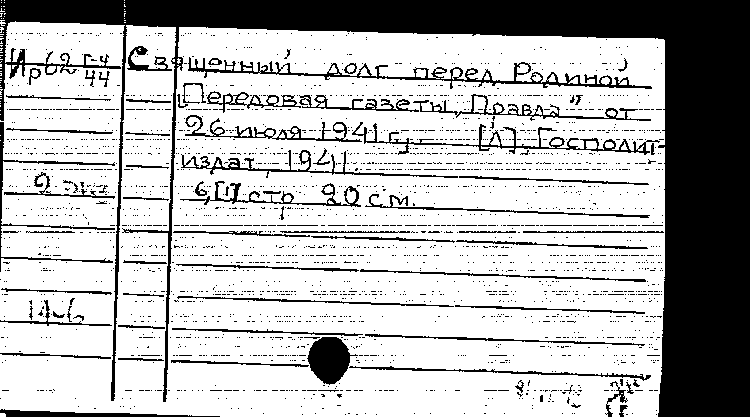 Ир62 Г-4
44
Священный долг перед Родиной
[Передовая газеты „Правда" от
26 июля 1941 г.]. [Л], Господит-
издат, 1941.
6,[1] стр 20 см.
2 экз
14-6